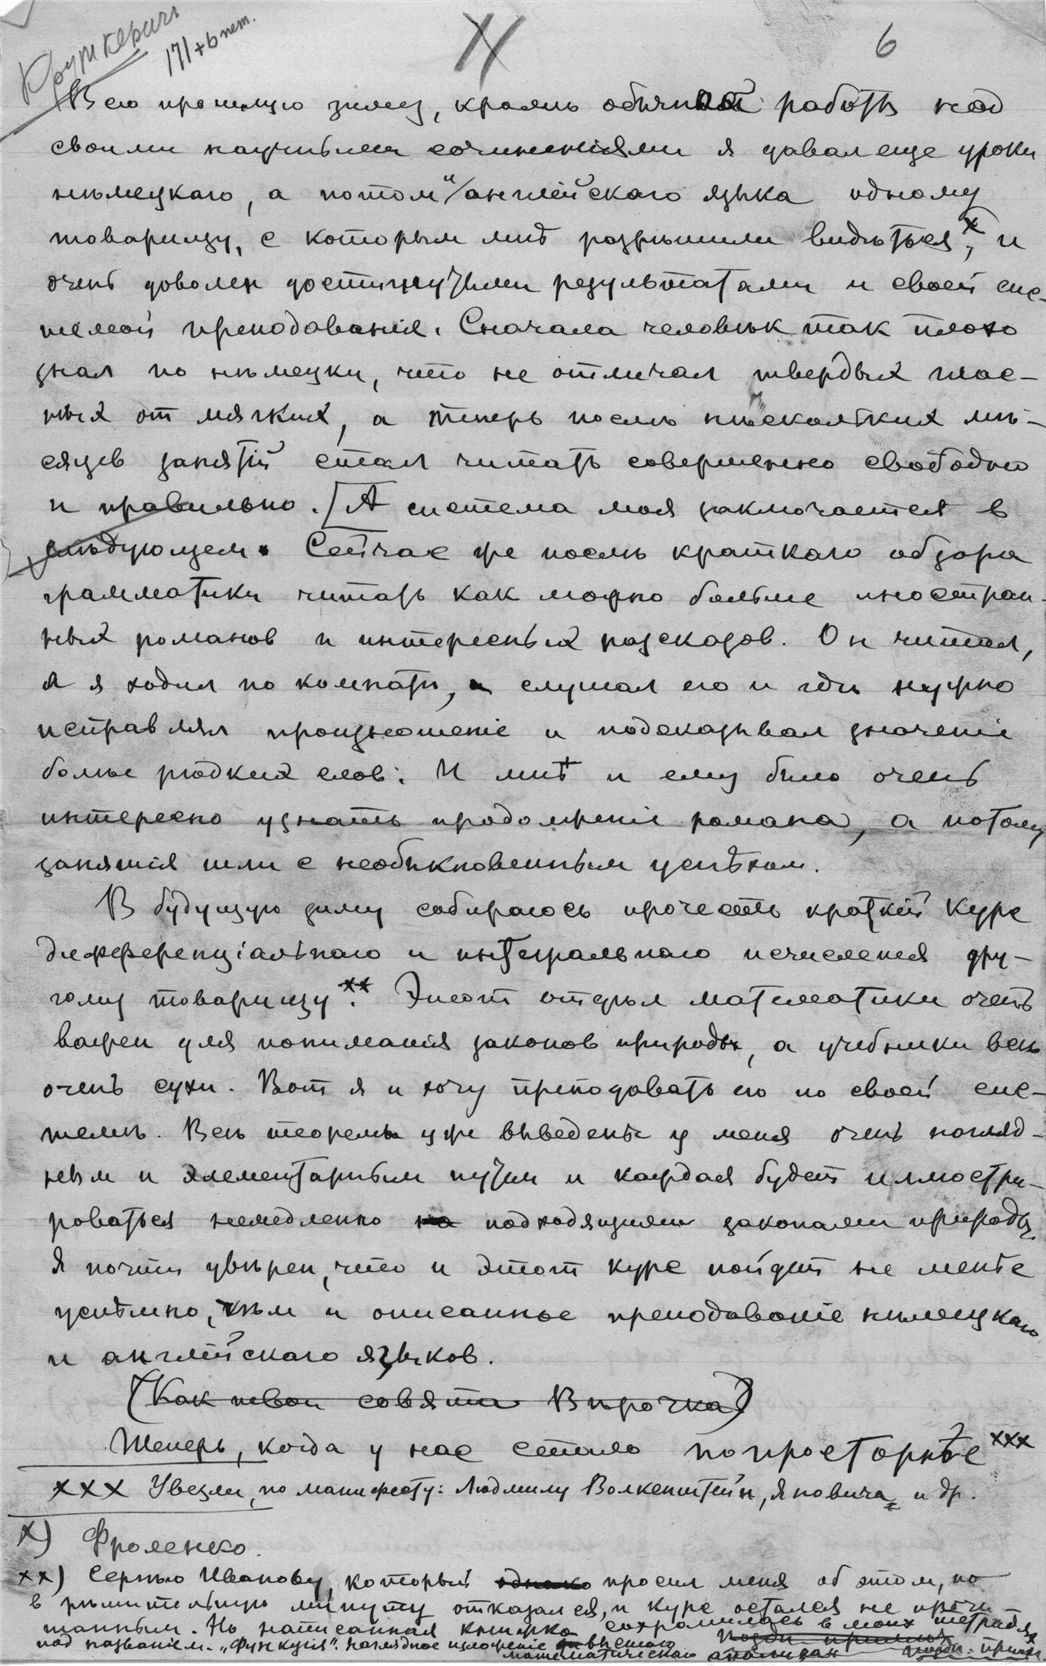 171 + 6 пет.
6
Всю прошлую зиму, кромѣ обычной работы над
своими научными сочиненіями я давал еще уроки
нѣмецкаго, а потом и англійскаго языка одному
товарищу, с которым мнѣ разрѣшили видѣться,ˣ и
очень доволен достигнутыми результатами и своей сис-
темой преподаванія. Сначала человѣк так плохо
знал по нѣмецки, что не отличал твердых глас-
ных от мягких, а теперь послѣ нѣскольких мѣ-
сяцев занятій стал читать совершенно свободно
и правильно. [А система моя заключается в
слѣдующем. Сейчас же послѣ краткаго обзора
грамматики читать как можно больше иностран-
ных романов и интересных разсказов. Он читал,
а я ходил по комнатѣ, слушал его и гдѣ нужно
исправлял произношеніе и подсказывал значеніе
болѣе рѣдких слов. И мнѣ и ему было очень
интересно узнать продолженіе романа, а потому
занятія шли с необыкновенным успѣхом.
В будущую зиму собираюсь прочесть краткій курс
дифференціальнаго и интегральнаго исчисленія дру-
гому товарищу.ˣˣ Этот отдѣл математики очень
важен для пониманія законов природы, а учебники всѣ
очень сухи. Вот я и хочу преподавать его по своей сис-
темѣ. Всѣ теоремы уже выведены у меня очень нагляд-
ным и элементарным путем и каждая будет иллюстри-
роваться немедленно на подходящими законами природы.
Я почти увѣрен, что и этот курс пойдет не менѣе
успѣшно, чѣм и описанное преподаваніе нѣмецкаго
и англійскаго языков.
(Как твои совята Впрочка)
Теперь, когда у нас стало попросторнѣе ˣˣˣ
ххх Увезли, по манифесту: Людмилу Волкенштейн, Яновича и др.
х) Фроленко.
хх) Сергѣю Иванову, который однако просил меня об этом, но
в рѣшительную минуту отказался, и курс остался не прочи-
танным. Но написанная книжка сохранилась в моих тетрадях
под названіем „Функція". Наглядное изложеніе высшаго
математическаго анализа